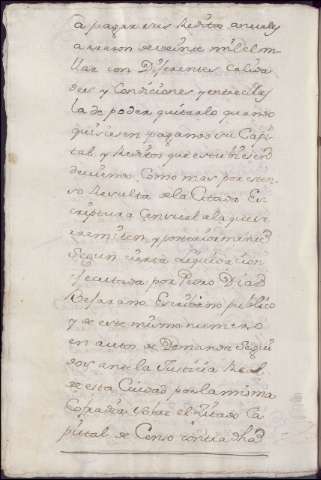 a pagar sus Reditos anuales
a razon de veinte mil el mi-
llar con Diferentes Calida-
des y Condiciones y entre ellas
la de poder quitarlo quando
quisiesen pagando su Capi-
tal y Reditos que estubiesen
deviendo Como mas por esten-
so Resulta de la Citada Es-
criptura Censual a la que se
remiten, y posteriormente
Segun cierta adjudicacion
practicada por Pedro Diaz
Bejarano Escribano publico
y de este mismo numero
en autos de Demanda Segui-
dos ante la Justicia Real
de esta Ciudad por la misma
Cofradia sobre el Citado Ca-
pital de Censo contra dha